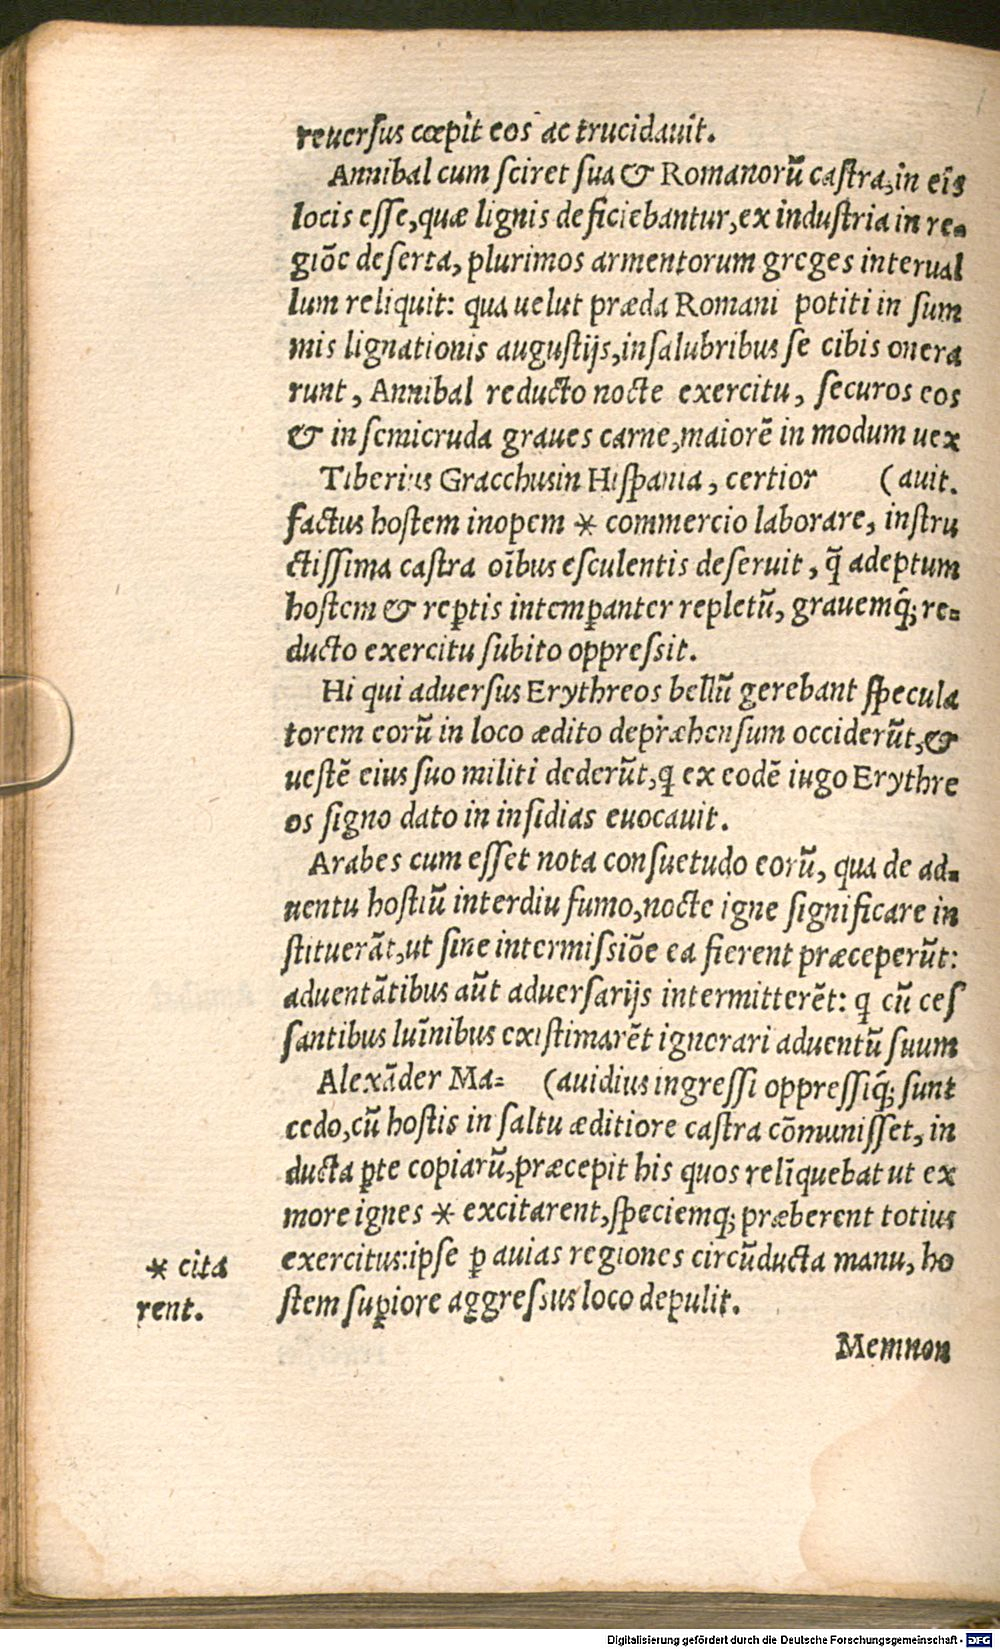 reuersus cœpit eos ac trucidauit.
Annibal cum sciret sua & Romanorū castra, in eis
locis esse, quæ lignis deficiebantur, ex industria in re=
giōe deserta, plurimos armentorum greges interual
lum reliquit: qua uelut præda Romani potiti in sum
mis lignationis augustijs, insalubribus se cibis onera
runt, Annibal reducto nocte exercitu, securos eos
& in semicruda graues carne, maiorē in modum uex
Tiberius Gracchus in Hispania, certior (auit.
factus hostem inopem * commercio laborare, instru
ctissima castra oībus esculentis deseruit, q̄ adeptum
hostem & rep̱tis intemp̱anter repletū, grauemq́; re=
ducto exercitu subito oppressit.
Hi qui aduersus Erythreos bellū gerebant specula
torem eorū in loco ædito depræhensum occiderūt, &
uestē eius suo militi dederūt, q ex eodē iugo Erythre
os signo dato in insidias euocauit.
Arabes cum esset nota consuetudo eorū, qua de ad=
uentu hostiū interdiu fumo, nocte igne significare in
stituerāt, ut sine intermissiōe ea fierent præceperūt:
aduentātibus aūt aduersarijs intermitterēt: q cū ces
santibus luīnibus existimarēt ignorari aduentū suum
Alexāder Ma= (auidius ingressi oppressiq́; sunt
cedo, cū hostis in saltu æditiore castra cōmunisset, in
ducta p̱te copiarū, præcepit his quos relīquebat ut ex
more ignes * excitarent, speciemq; præberent totius
exercitus: ipse p̱ auias regiones circūducta manu, ho
stem sup̱iore aggressus loco depulit.
* cita
rent.
Memnon
Digitalisierung gefördert durch die Deutsche Forschungsgemeinschaft - DFG